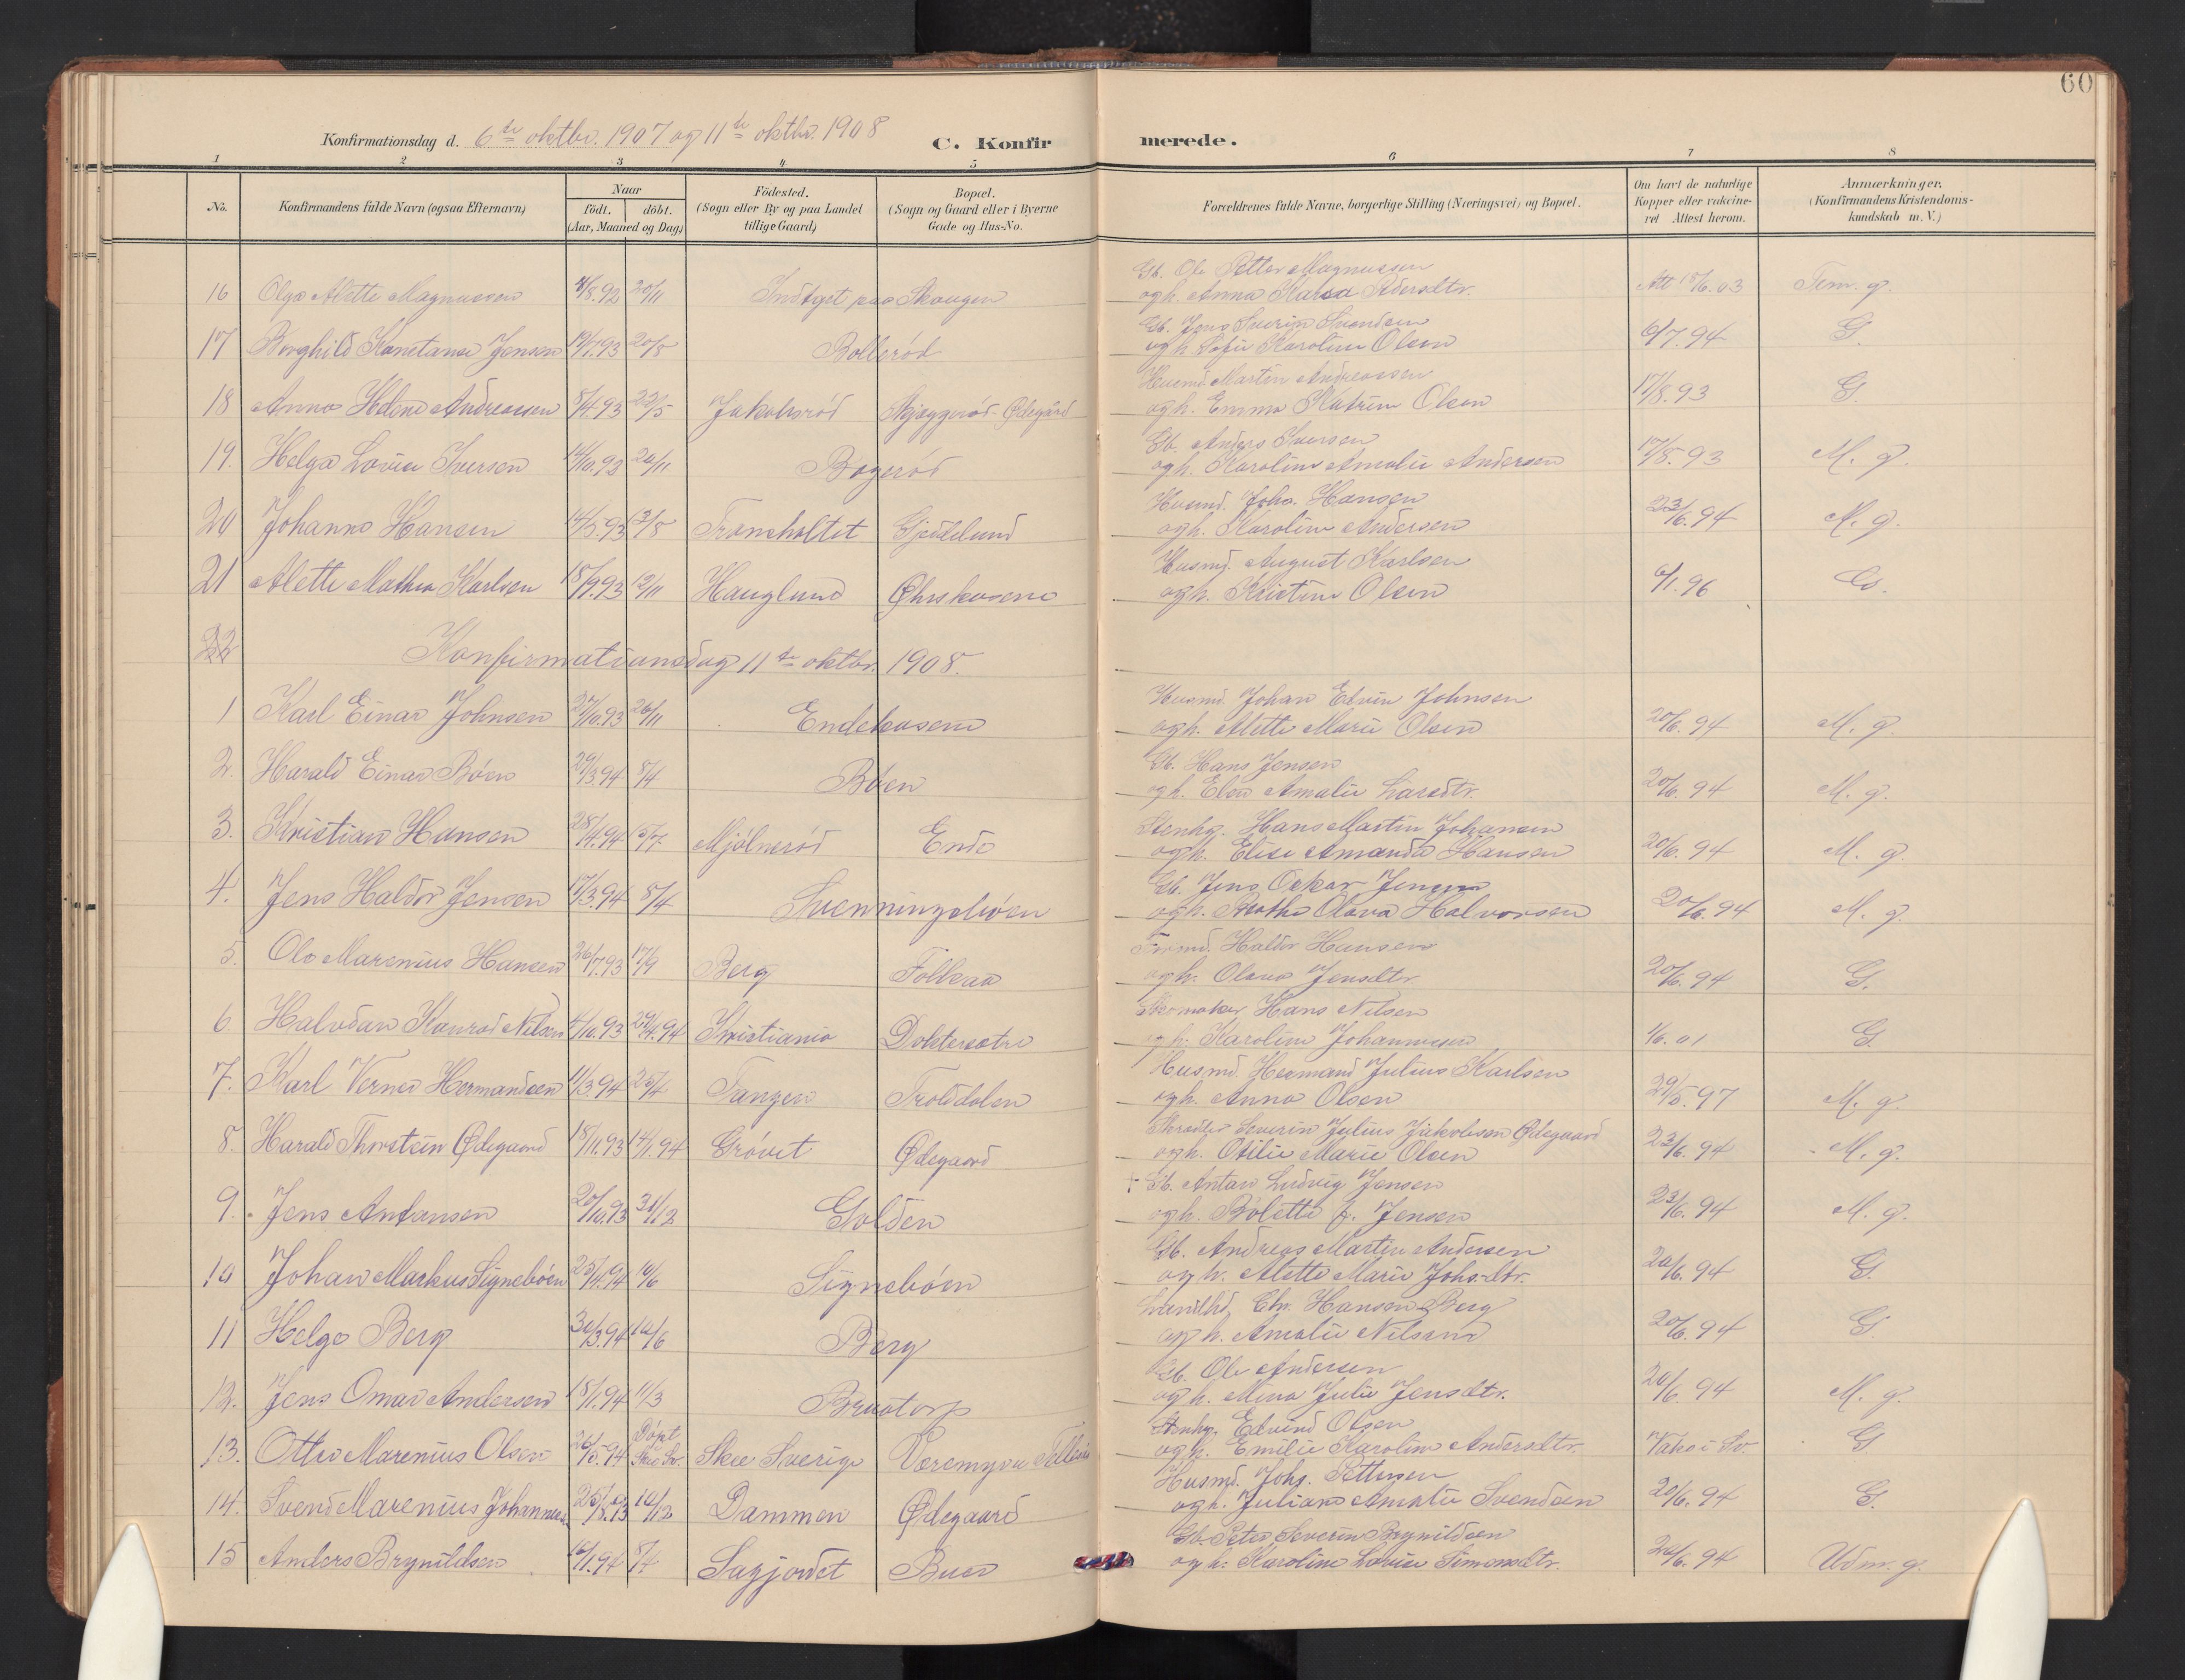 60
Konfirmationsdag d. 6te oktbr. 1907 og 11te oktbr. 1908
C. Konfirmerede.
1 2 3 4 5 6 7 8
No.
Konfirmandens fulde Navn (ogsaa Efternavn)
Naar
födt. döbt.
(Aar, Maaned og Dag)
Födested.
(Sogn eller By og paa Landet
tillige Gaard)
Bopæl.
(Sogn og Gaard eller i Byerne
Gade og Hus-No.
Forældrenes fulde Navne, borgerlige Stilling (Næringsvei) og Bopæl.
Om havt de naturlige
Kopper eller vakcine-
ret Attest herom.
Anmærkninger.
(Konfirmandens Kristendoms-
kundskab m. V.)
Gb. Ole Petter Magnussen
16 Olga Alette Magnussen /8.92 20/11 paa Skougen ogh. Anna Pedersdtr. Att 15/6.03 Tem. g.
Gb. Jens Severin Svendsen
17 Borghild Konstanse Jensen 19/7.93 20/8 Bollerød ogh. Sofie Karoline Olsen 6/7.94 G.
Husmd. Martin Andreassen
18 Anna Helene Andreassen 8/4.93 22/5 Jakobsrød Skjøggerød Ødegård ogh. Emma Katrine Olsen 17/8.93 G.
Gb. Anders Iversen
19. Helga Lovise Iversen 14/10.93 20/11 Bøgerød ogh. Karoline Amalie Andersen 17/8.93 M. g.
Husmd. Johs. Hansen
20 Johanne Hansen 14/5.93 13/8 Traneholtet Gjødelund ogh. Karoline Andersen 23/6.94 M. g.
Husmd. August Karlsen
21 Alette Mathea Karlsen 18/9.93 12/11 Hauglund Øhrskasene ogh. Kristine Olsen 6/1.96 G.
22 Konfirmationsdag 11te oktbr. 1908.
Husmd. Johan Edvin Johnsen
1 Karl Einar Johnsen 27/10.93 26/11 Endekasene ogh. Alette Marie Olsen 20/6.94 M. g.
Gb. Hans Jensen
2. Harald Einar Bøen 29/3.94 8/4 Bøen ogh. Elen Amalie Larsdtr. 20/6.94 M. g.
Stenhg. Hans Martin Johansen
3. Kristian Hansen 28/4.94 15/7 Mjølnerød Ende ogh. Elise Amanda Hansen 20/6.94 M. g.
Gb. Jens Oskar Jensen
4. Jens Haldor Jensen 17/3.94 8/4 Svenningsbøen ogh. Olava Halvorsen 20/6.94 M. g.
Haldor Hansen
5. Ole Marenius Hansen 26/7.93 17/9 Berg Folkaa ogh. Olava Jensdtr. 20/6.94 G.
Skomaker Hans Nilsen
6 Halvdan Konrad Nilsen 4/10.93 29/4.94 Kristiania Doktersætre ogh. Karoline Johannesen 1/6.01 G.
Husmd Hermand Julius Karlsen
7. Karl Verner Hermandsen 11/3.94 25/4 Tangen Trolddalen ogh. Anna Olsen 29/5.97 M. g.
Skredder Severin Julius Jakobsen Ødegaard
8. Harald Thorstein Ødegaard 18/11.93 14/1.94 Grøvet Ødegaard ogh. Otilie Marie Olsen 23/6.94 M. g.
† Gb. Anton Ludvig Jensen
9. Jens Antonsen 20/10.93 31/12 Golden ogh. Bolette f. Jensen 23/6.94 M. g.
Gb. Andreas Martin Andersen
10 Johan Markus Signebøen 25/4.94 10/6 Signebøen ogh. Alette Marie Johs.dtr. 20/6.94 G.
Chr. Hansen Berg
11 Helge Berg 30/3.94 10/6 Berg ogh. Amalie Nilsen 20/6.94 G.
Gb. Ole Andersen
12. Jens Omar Andersen 18/1.94 11/3 Bruatorp ogh. Mina Julie Jensdtr. 20/6.94 M. g.
Døpt
Stenhg. Edvind Olsen
13. Otto Marenius Olsen 26/5.94 Skee Sv. Skee Sverige Væremyra ogh. Emilie Karoline Andersdtr. Vaks i Sv G
Husmd. Johs. Pettersen
14. Svend Marenius Johannesen 25/8.93 10/12 Dammen Ødegaard ogh. Juliane Amalie Svendsen 20/6.94 G.
Gb. Peter Severin Brynildsen
15 Anders Brynildsen 10/1.94 8/4 Sagjordet Buer ogh. Karoline Lovise Simonsdtr. 20/6.94 Udm. g.